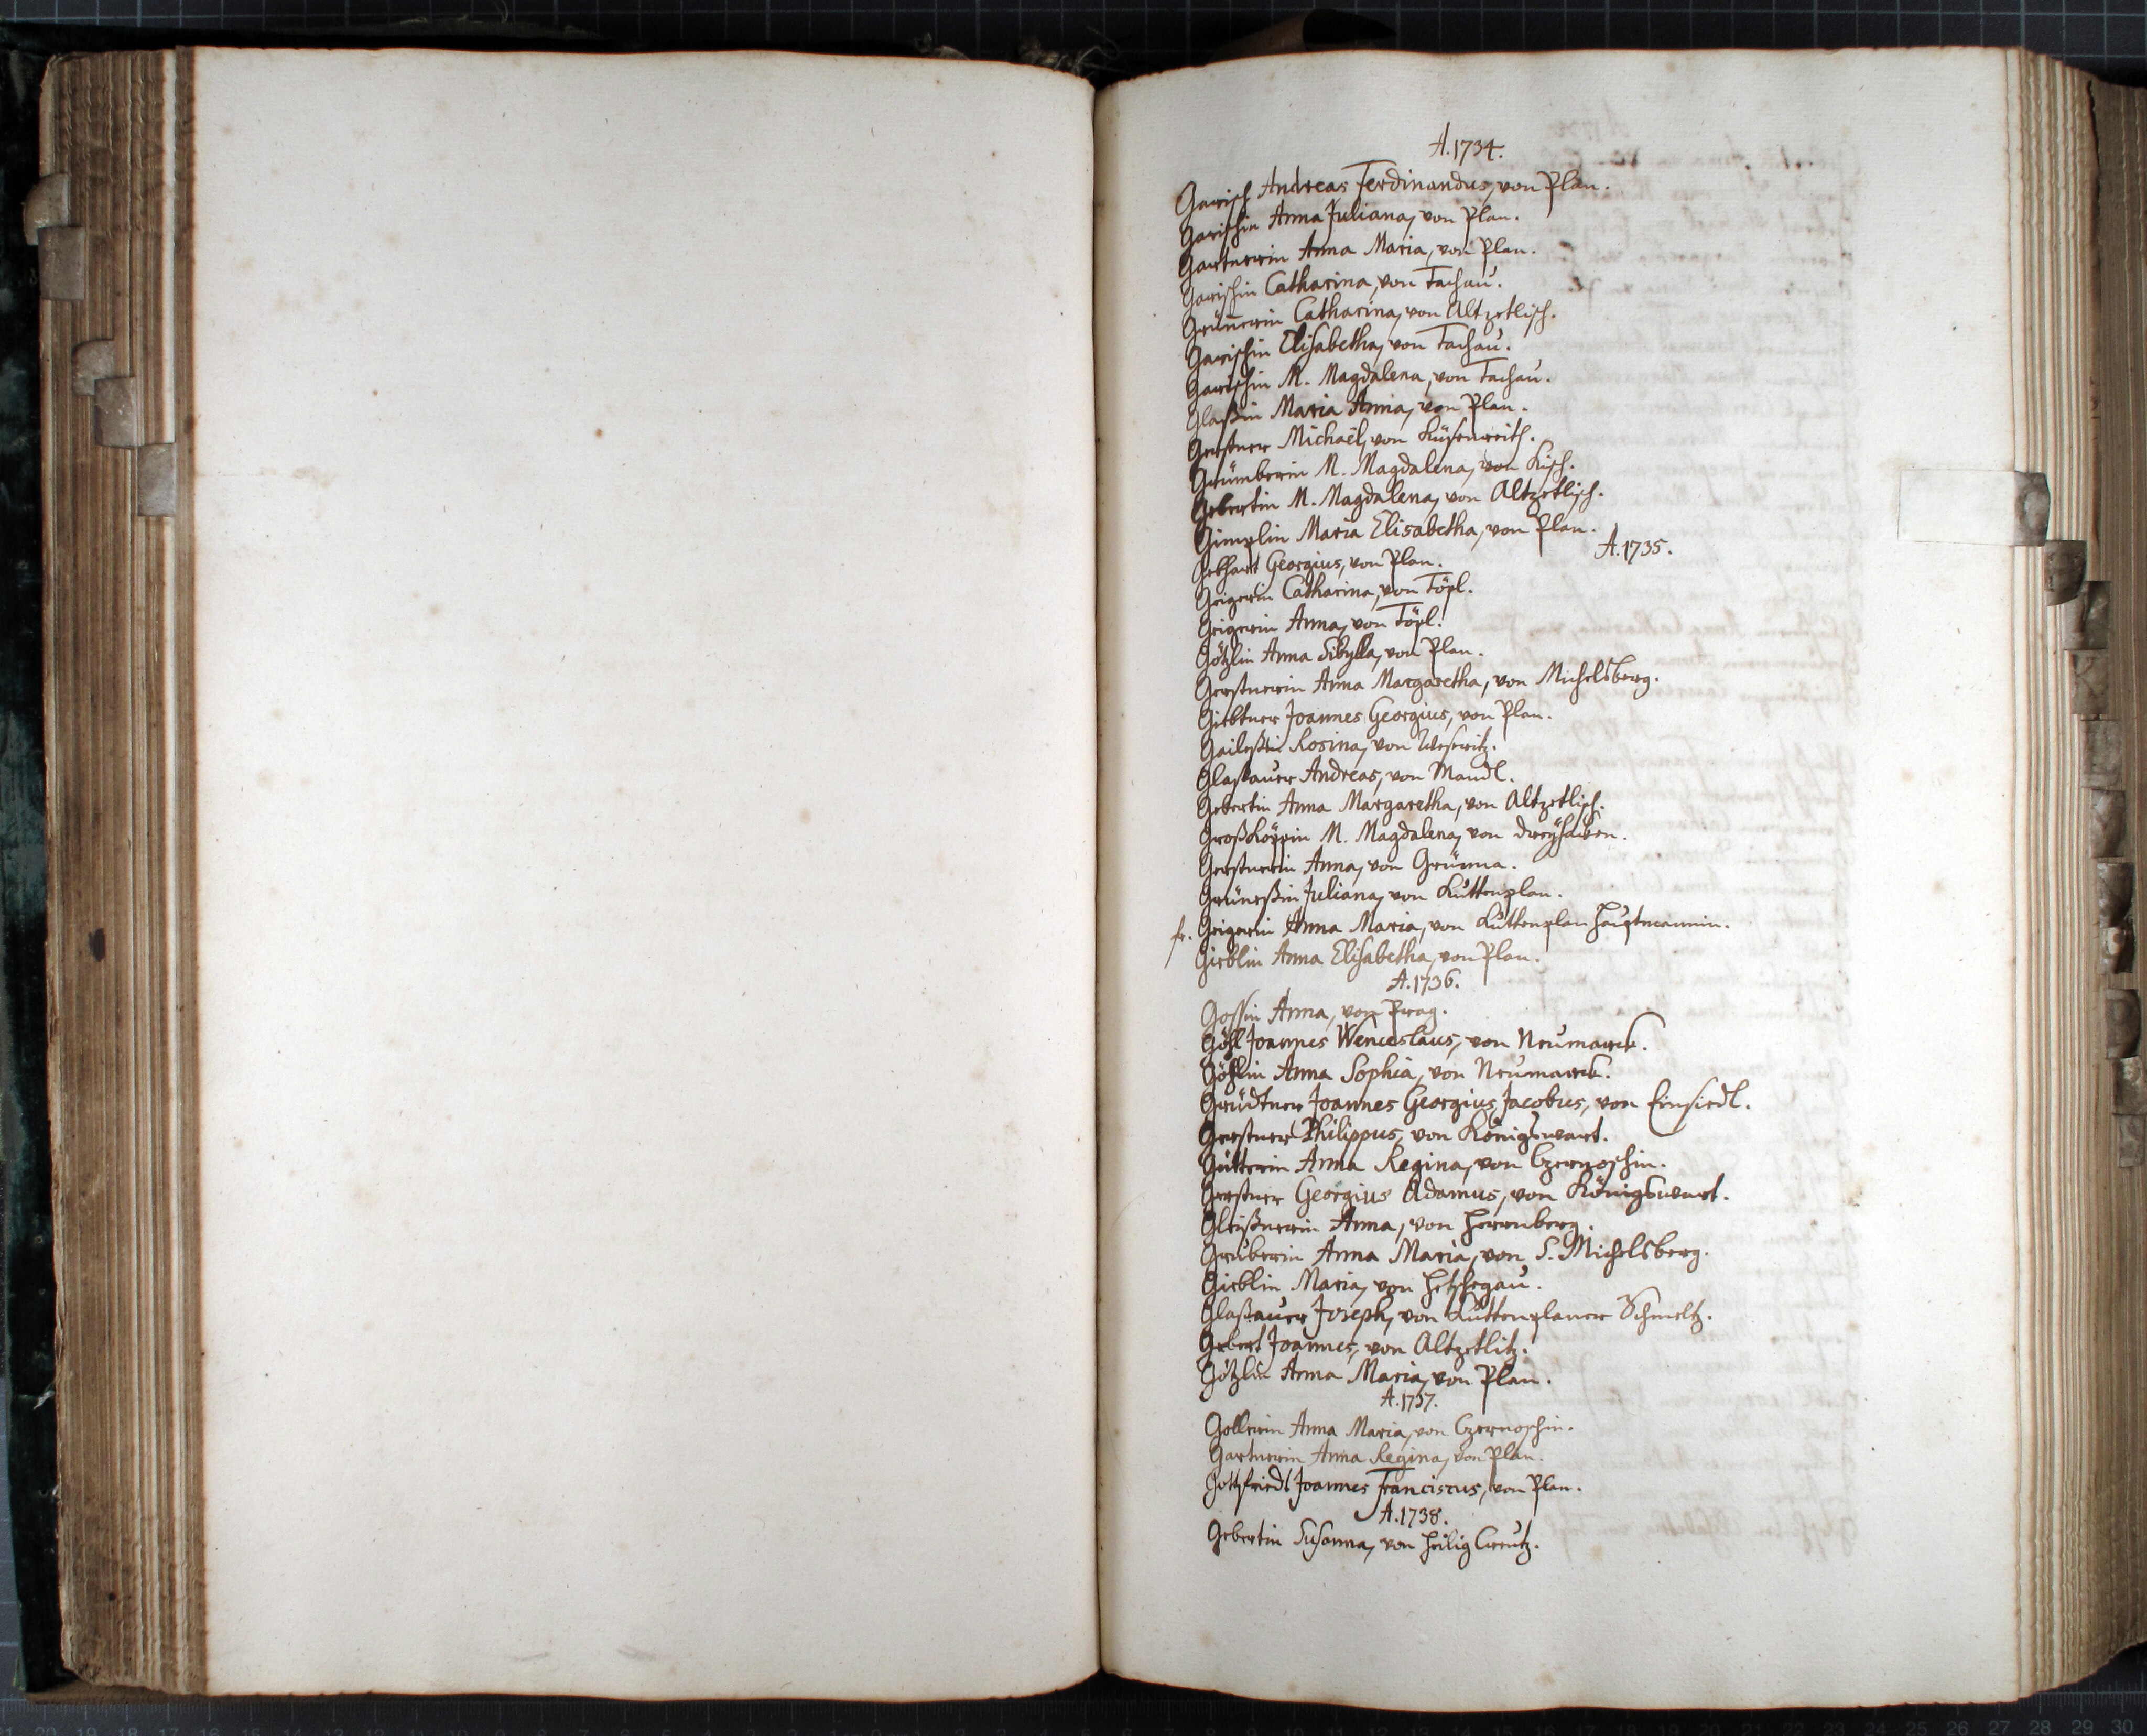 A. 1734.
Garisch Andreas Ferdinandus, von Plan.
Garischin Anna Juliana, von Plan.
Gartnerin Anna Maria, von Plan.
Garischin Catharina, von Tachau.
Grünnerin Catharina, von Altzetlisch.
Garischin Elisabetha, von Tachau.
Garischin M. Magdalena, von Tachau.
Glaßin Maria Anna, von Plan.
Gerstner Michaël, von
Grümberin M. Magdalena, von
Gebertin M. Magdalena, von Altzetlisch.
Gimplin Maria Elisabetha, von Plan.
A. 1735.
Gebhart Georgius, von Plan.
Geigerin Catharina, von Töpl.
Geigerin Anna, von Töpl.
Götzlin Anna Sibylla, von Plan.
Gerstnerin Anna Margaretha, von Michelsberg.
Joannes Georgius, von Plan.
Rosina, von Weseritz.
Glaßauer Andreas, von
Gebertin Anna Margaretha, von Altzetlisch.
Großköppin M. Magdalena, von Dreyhaken.
Gerstnerin Anna, von Grünna.
Juliana, von Kuttenplan.
fr. Geigerin Anna Maria, von Kuttenplan Hauptmannin.
Gieblin Anna Elisabetha, von Plan.
A. 1736.
Gossin Anna, von Prag.
Joannes Wenceslaus, von Neumarck.
Anna Sophia, von Neumarck.
Grüdtner Joannes Georgius Jacobus, von Einsiedl.
Gerstner Philippus, von Königswart.
Gütterin Anna Regina, von Czernoschin.
Gerstner Georgius Adamus, von Königswart.
Gleißnerin Anna, von Herrnberg.
Gruberin Anna Maria, von S. Michelsberg.
Gieblin Maria, von
Glaßauer Joseph, von Kuttenplaner Schmeltz.
Gebert Joannes, von Altzetlitz.
Götzlin Anna Maria, von Plan.
A. 1737.
Gollerin Anna Maria, von Czernoschin.
Gartnerin Anna Regina, von Plan.
Gottfriedt Joannes Franciscus, von Plan.
A. 1738.
Gebertin Susanna, von Heilig Creutz.